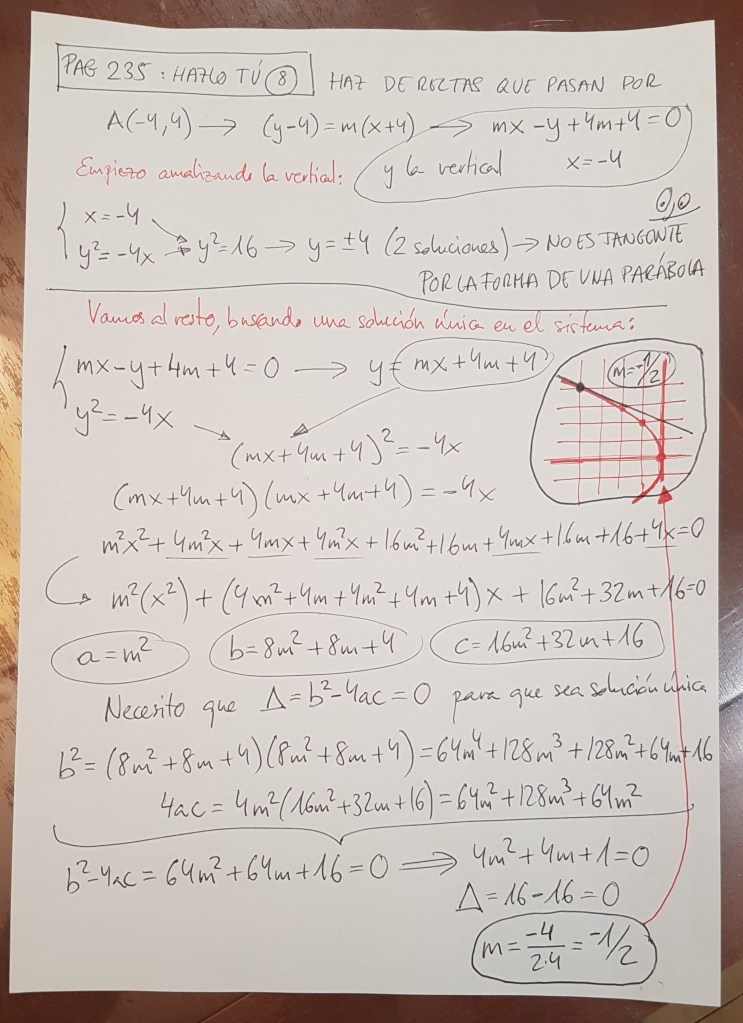 PAG 235: HAZLO TÚ 8 HAZ DE RECTAS QUE PASAN POR
A(-4,4) → (y-4)=m(x+4) → mx-y+4m+4=0
Empiezo analizando la vertical: y la vertical x=-4
{ x=-4
y²=-4x → y²=16 → y=±4 (2 soluciones) → NO ES TANGENTE
POR LA FORMA DE UNA PARÁBOLA
Vamos al resto, buscando una solución única en el sistema:
{ mx-y+4m+4=0 → y=mx+4m+4
m=-1/2
y²=-4x
(mx+4m+4)²=-4x
(mx+4m+4)(mx+4m+4)=-4x
m²x²+4m²x+4mx+4m²x+16m²+16m+4mx+16m+16+4x=0
m²(x²)+(4m²+4m+4m²+4m+4)x+16m²+32m+16=0
a=m² b=8m²+8m+4 c=16m²+32m+16
Necesito que Δ=b²-4ac=0 para que sea solución única
b²=(8m²+8m+4)(8m²+8m+4)=64m⁴+128m³+128m²+64m+16
4ac=4m²(16m²+32m+16)=64m²+128m³+64m²
b²-4ac=64m²+64m+16=0 ⟹ 4m²+4m+1=0
Δ=16-16=0
m=-4/2·4=-1/2